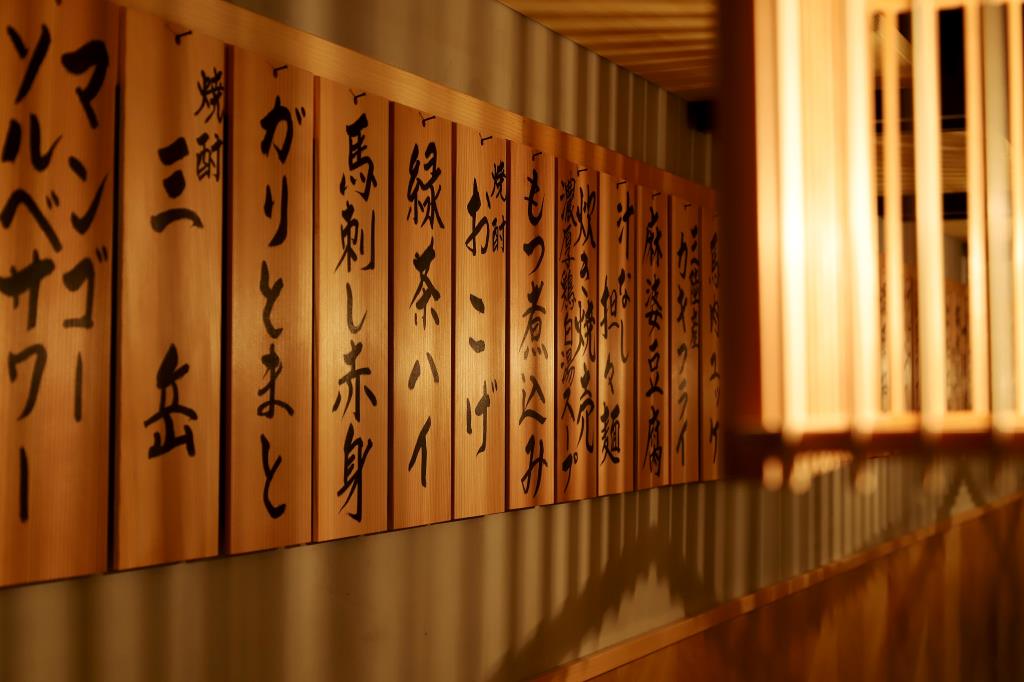 馬肉ユッケ
三陸産
カキフライ
麻婆豆腐
汁なし
担々麺
炊き焼売
濃厚鶏白湯スープ
もつ煮込み
焼酎
おこげ
緑茶ハイ
馬刺し赤身
がりとまと
焼酎
三岳
マンゴー
ソルベサワー